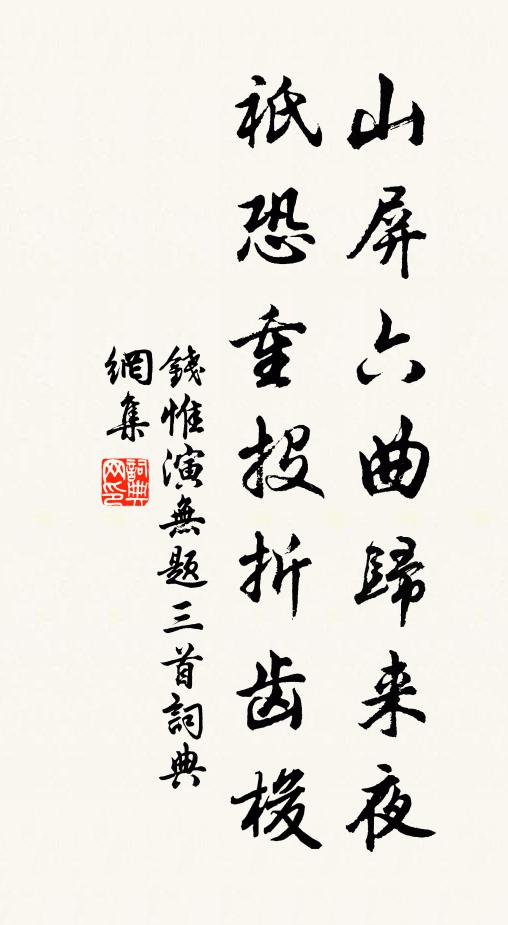 山屏六曲歸来夜
祇恐重投折齿梭
錢惟演無题三首詞典
網集
詞典
网印